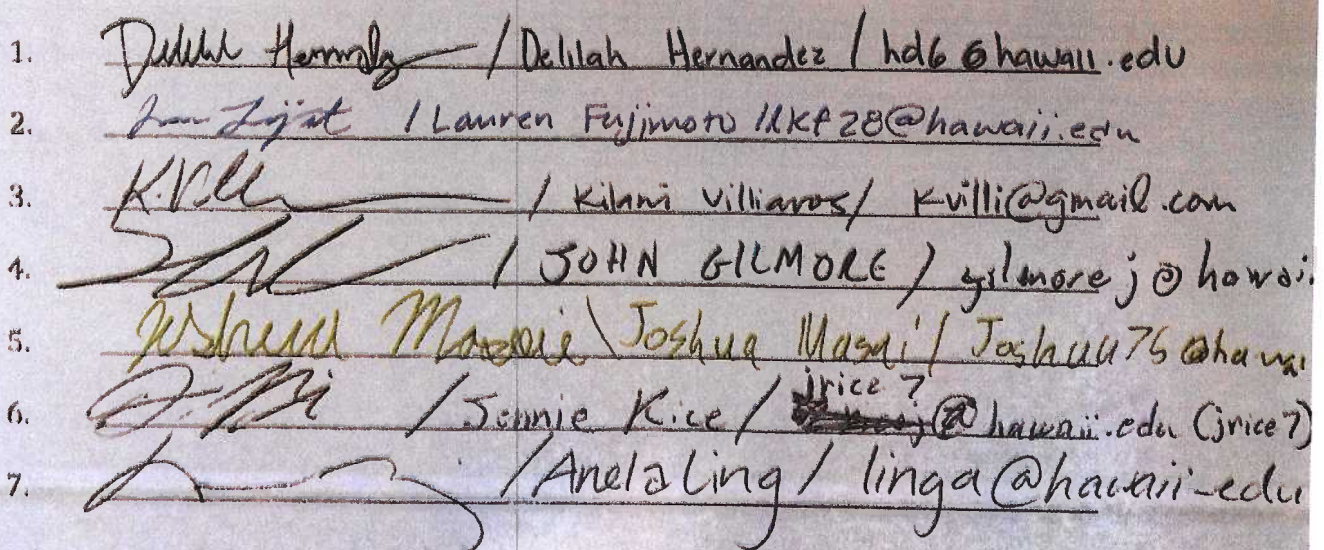 1. / Delilah Hernandez / hd6@hawaii.edu
2. / Lauren Fujimoto / lkf28@hawaii.edu
3. K.Vill / Kilani Villiaros / Kvilli@gmail.com
4. / JOHN GILMORE / gilmorej@hawai
5. \ Joshua Masai / Joshua75@hawai
6. / Jennie Rice / jrice7@hawaii.edu (jrice7)
7. / Anela Ling / linga@hawaii.edu